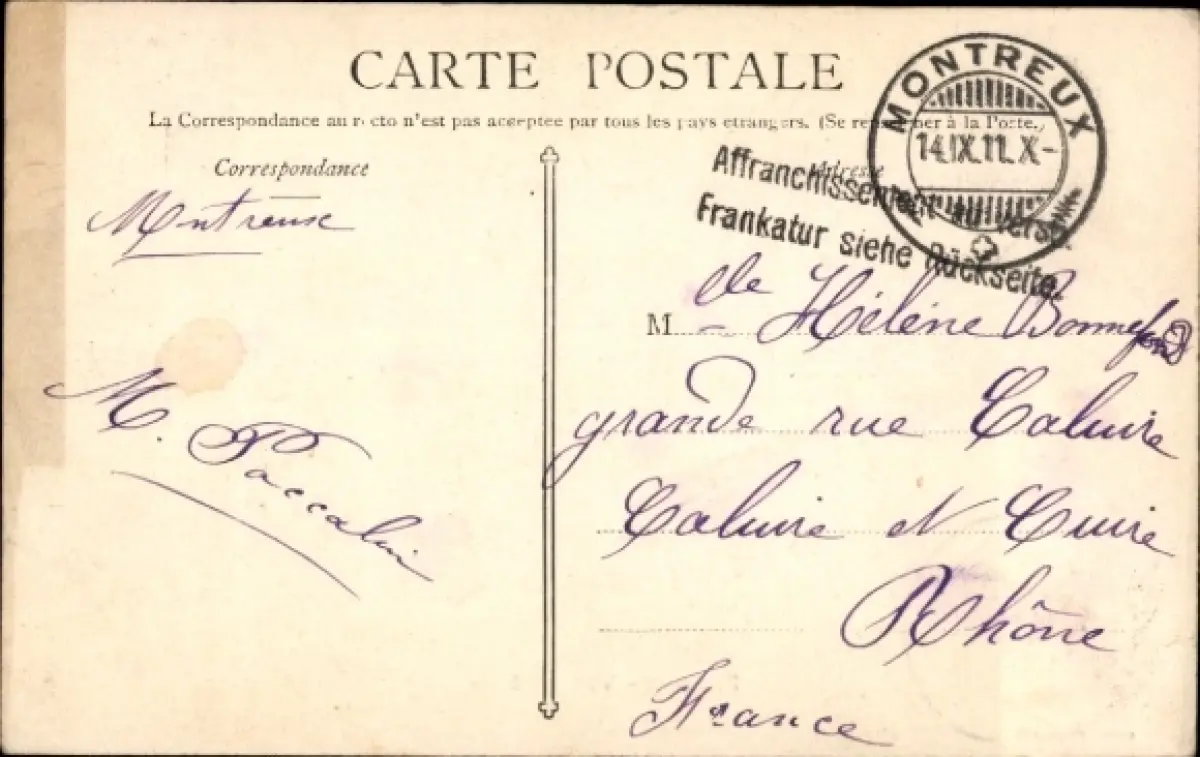 CARTE POSTALE
La Correspondance au recto n'est pas acceptee par tous les pays etrangers. (Se renseigner à la Poste.)
Correspondance
Adresse
MONTREUX
14.IX.11.X-
Affranchissement au verso.
Frankatur siehe Rückseite.
Montreux
M. Paccalin
Mlle Hélène Bonnefond
grande rue Caluire
Caluire et Cuire
Rhône
France